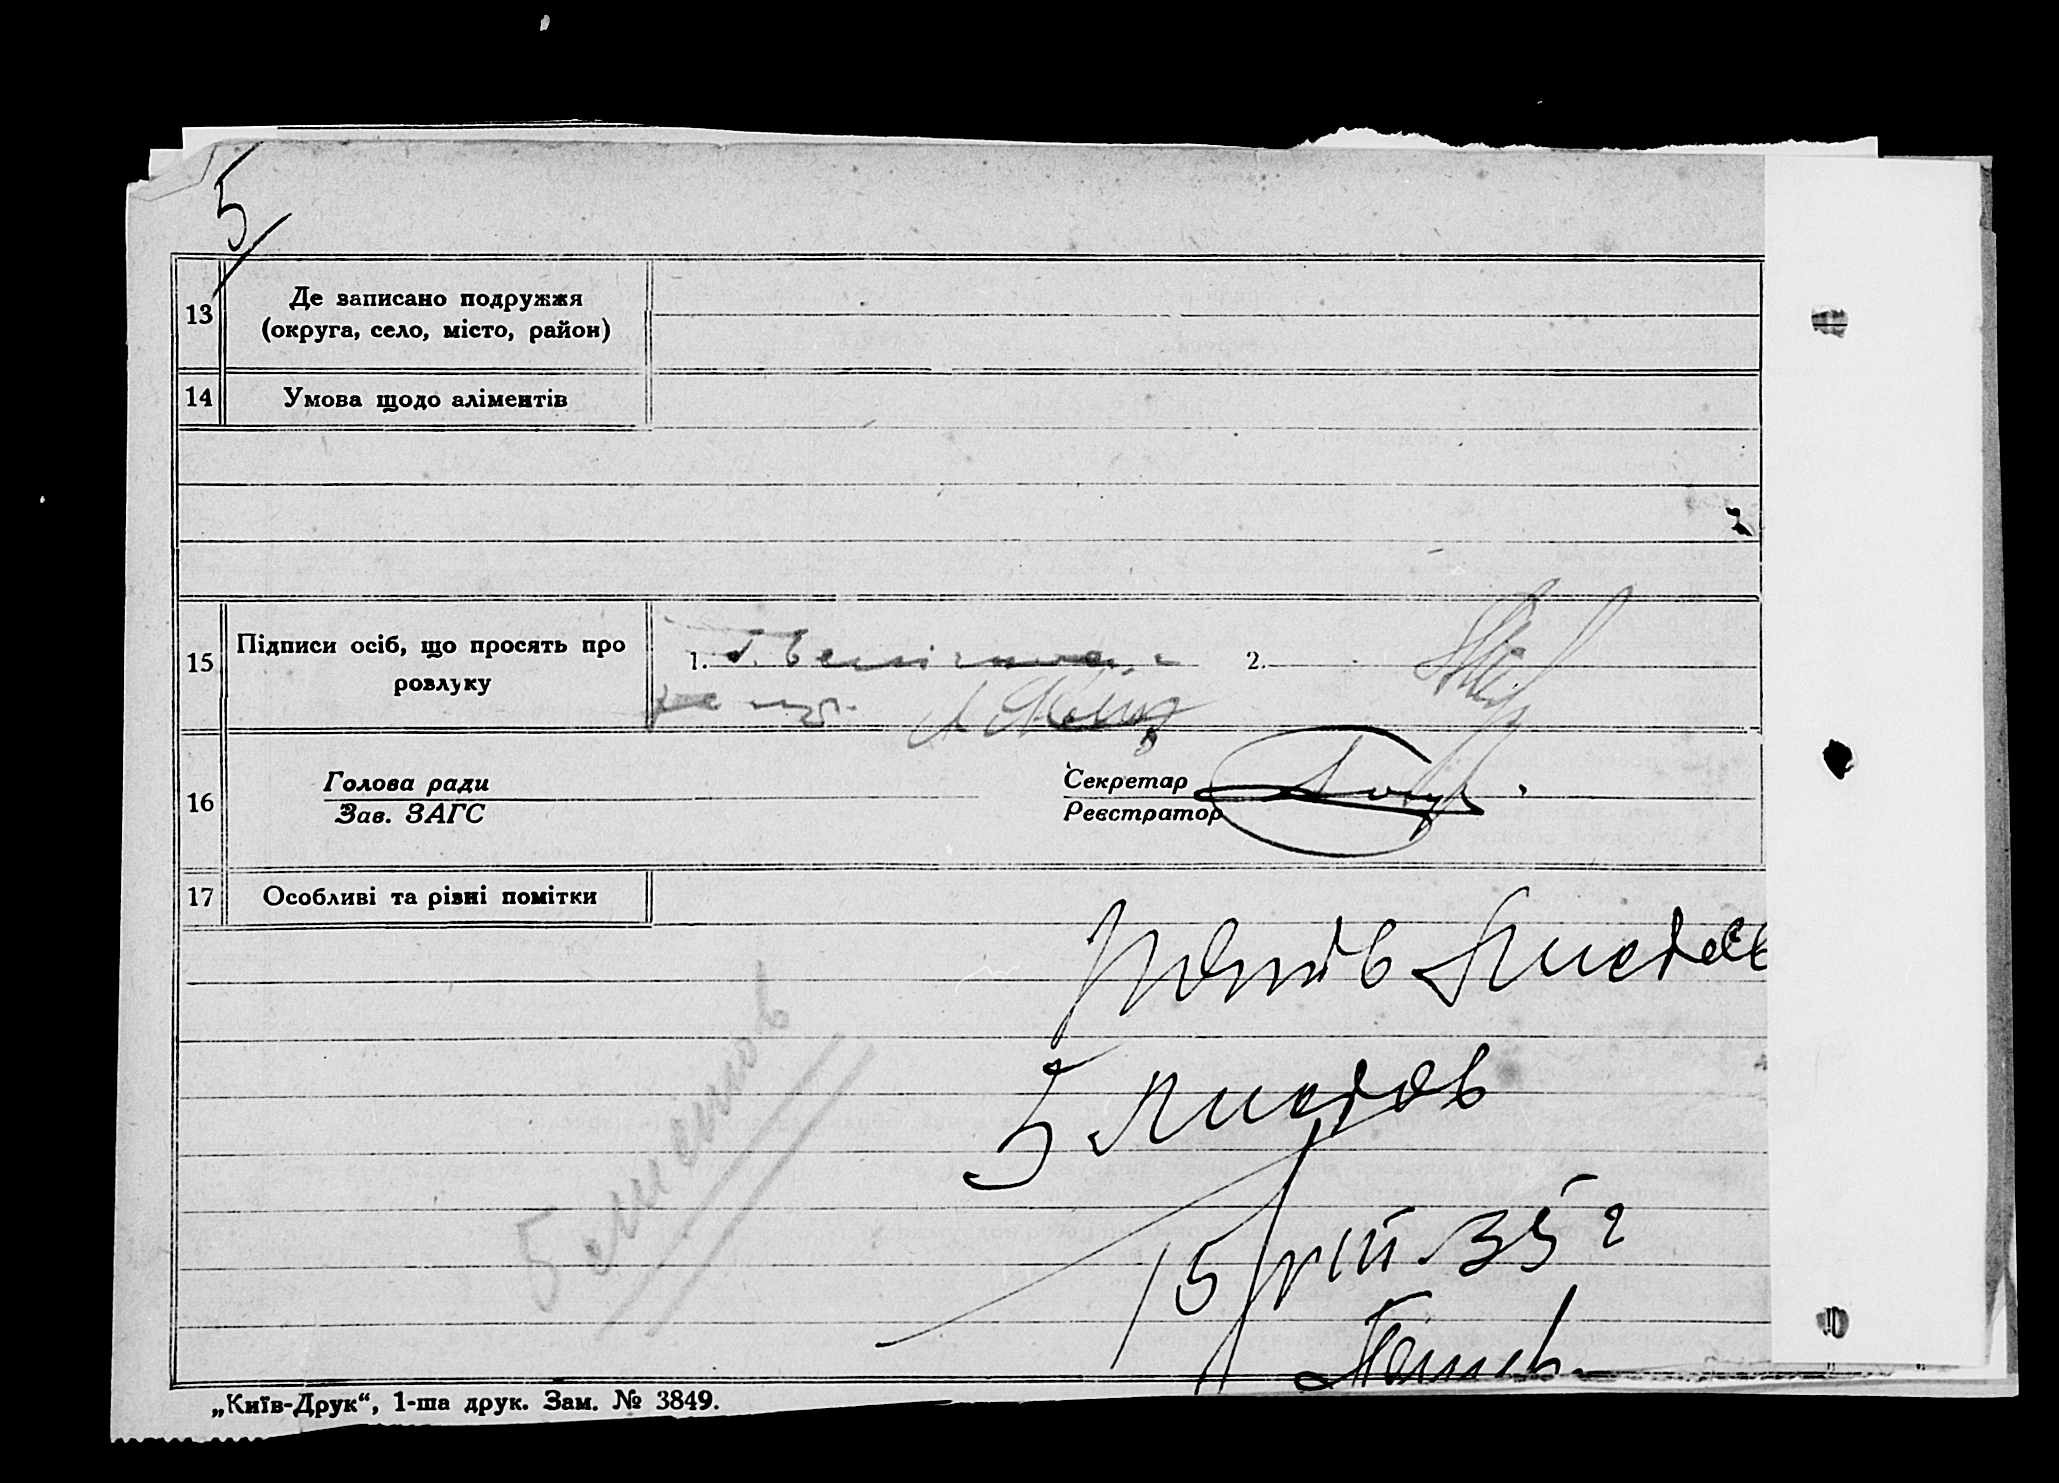 5
13 Де записано подружжя
(округа, село, місто, район)
14 Умова щодо аліментів
15 Підписи осіб, що просять про
розлуку
1.
2.
16 Голова ради
Зав. ЗАГС
Секретар
Реєстратор
17 Особливі та різні помітки
листов
5 листов
5 листов
15/VIII 35 г
„Київ-Друк“, 1-ша друк. Зам. № 3849.